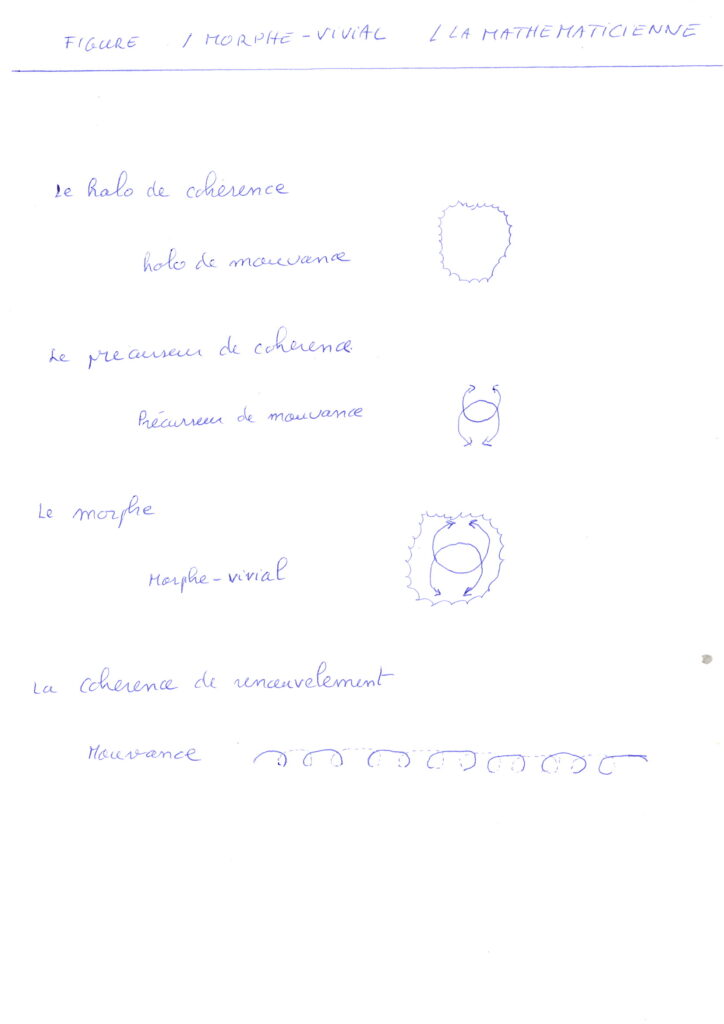 FIGURE / MORPHE-VIVIAL / LA MATHEMATICIENNE
Le halo de cohérence
halo de mouvance
Le precurseur de coherence
Précurseur de mouvance
Le morphe
Morphe-vivial
La coherence de renouvelement
Mouvance